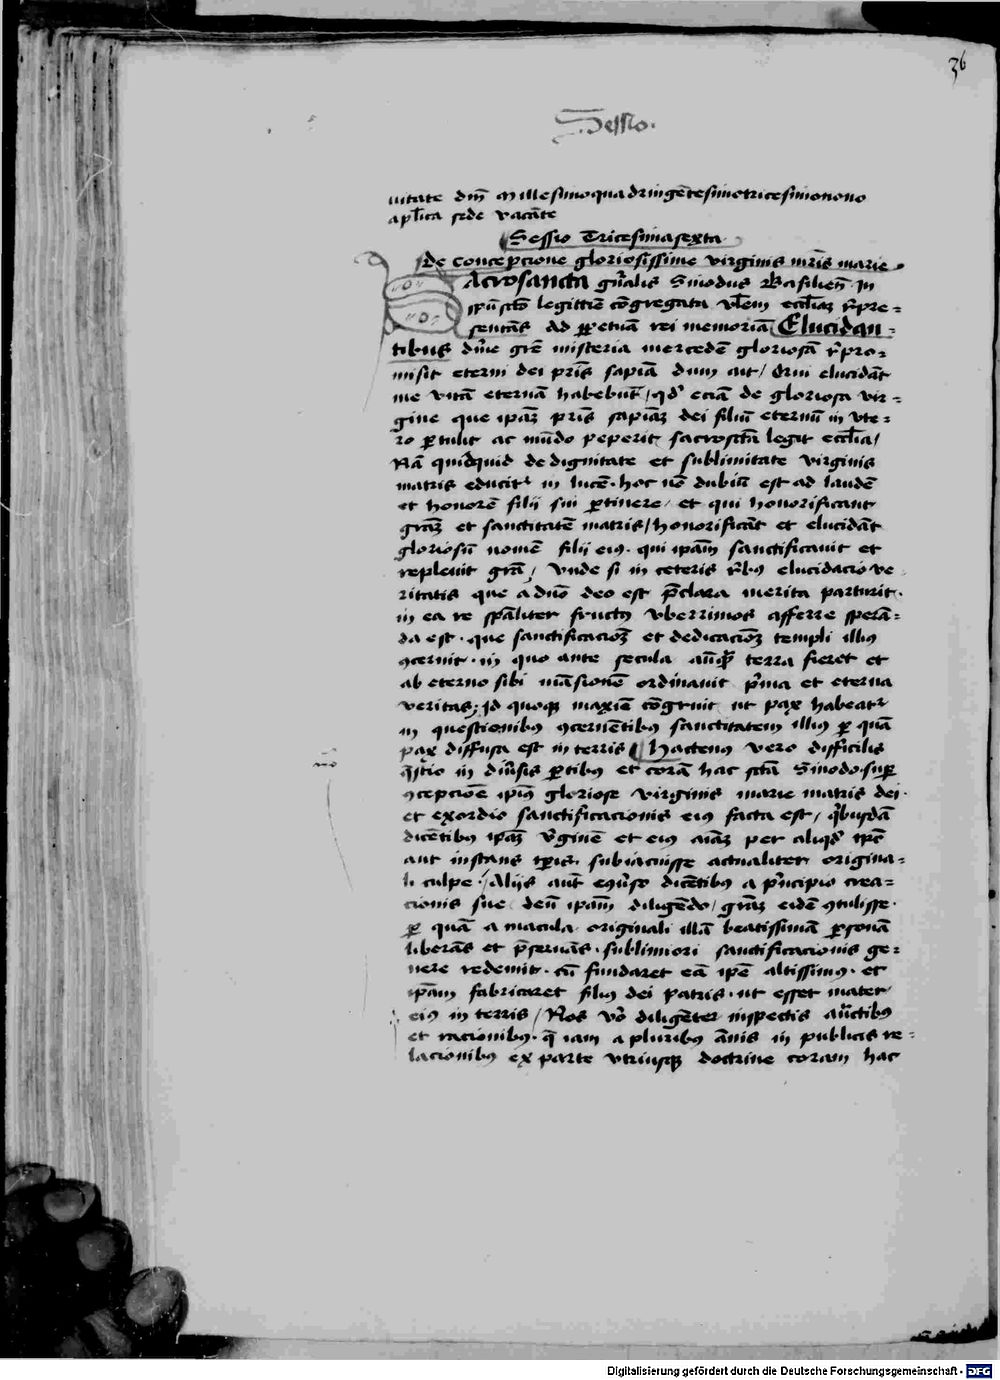 36
Sessio.
uitate dm̄ Millesimoquadringētesimotricesimonono
aplīca sede vacāte
Sessio Tricesimasexta
De Concepcione gloriosissime virginis mr̄is marie
Sacrosancta gn̄alis Sinodus Basilien̄ In
spū scto legittīe cōgregata vl̄em eccl̄iaꝫ rp̄re-
sentās Ad ꝑpetuā rei memoriā Elucidan-
tibus dīne grē misteria mercedē gloriosā rp̄ro-
misit eterni dei pr̄is sapiā dum ait / Qui elucidāt
me vitā eternā habebūt / qd̓ eciā de gloriosa vir-
gine que ip̄aꝫ pr̄is sapiāꝫ dei filiū eternū in vte-
ro ꝑtulit ac mūdo peperit sacroscta legit eccl̄ia /
Nā quidquid de dignitate et sublimitate virginis
matris educit̓ in lucē. hoc nō dubiū est ad laudē
et honorē filij sui ꝑtinere / et qui honorificant
graꝫ et sanctitatē matris / honorificāt et elucidāt
gloriosū nomē filij eius. qui ip̄am sanctificauit et
repleuit grā / Vnde si in ceteris rebꝰ elucidacio ve
ritatis que a duō deo est p̄clara merita parturit.
in ea re spāliter fructꝰ vberrimos afferre sperā-
da est. que sanctificacioꝫ et dedicacioꝫ templi illiꝰ
ꝯcernit. in quo ante secula anq̄ꝫ terra fieret et
ab eterno sibi māsionē ordinauit p̓ma et eterna
veritas; Id quoqꝫ maxīe cōgruit ut pax habeat̓
in questionibꝰ ꝯcernētibꝰ sanctitatem illiꝰ ꝑ quā
pax diffusa est in terris Hactenꝰ vero difficilis
q̄stio in diūsis ꝑtibꝰ et corā hac sctā Sinodo. suꝑ
ꝯcepcione ip̄iꝰ gloriose virginis marie matris dei.
et exordio sanctificacionis eiꝰ facta est / q̓busdā
dicētibꝰ ip̄aꝫ v̓ginē et eiꝰ aīaꝫ per aliqd̓ tp̄s
aut instans tp̄ris. subiacuisse actualiter origina-
li culpe. / Alijs aūt eqūso dicētibꝰ a p̓ncipio crea-
cionis sue deū ip̄am diligēdo / graꝫ eidē ꝯtulisse.
ꝑ quā a macula originali illā beatissimā ꝑsonā
liberās et p̄seruās. sublimiori sanctificacionis ge-
nere redemit. cū fundaret eā ip̄e altissimꝰ. et
ip̄am fabricaret filiꝰ dei patris. ut esset mater
eiꝰ in terris / Nos vo̓ diligēter inspectis auctibꝰ
et racionibꝰ. q̄ iam a pluribꝰ ānis in publicis re-
lacionibꝰ ex parte vtriusqꝫ doctrine coram hac
Digitalisierung gefördert durch die Deutsche Forschungsgemeinschaft - DFG